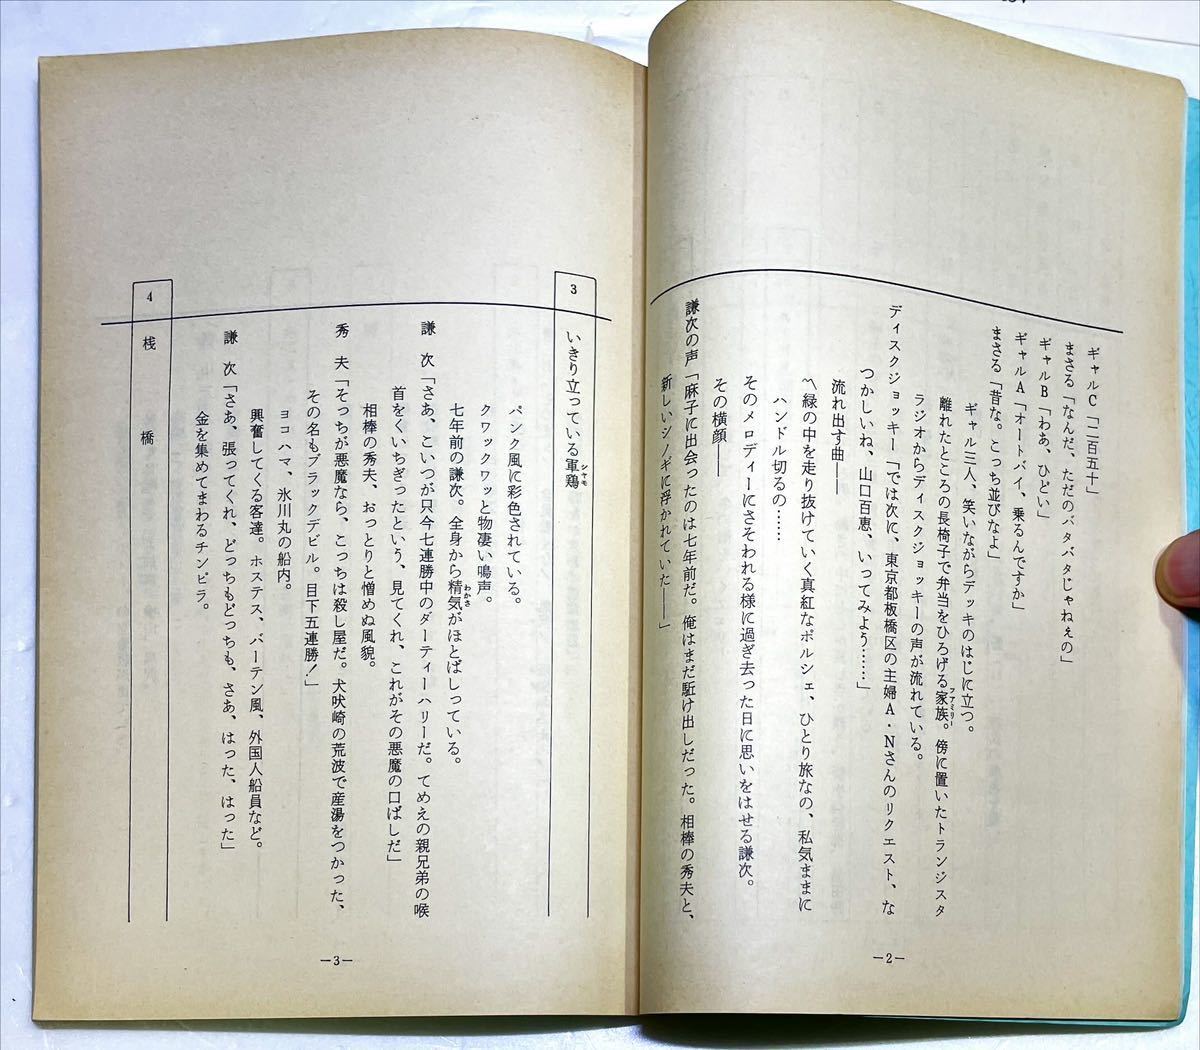 ギャルC「二百五十」
まさる「なんだ、ただのバタバタじゃねぇの」
ギャルB「わあ、ひどい」
ギャルA「オートバイ、乗るんですか」
まさる「昔な。こっち並びなよ」
ギャル三人、笑いながらデッキのはじに立つ。
離れたところの長椅子で弁当をひろげる家族。傍に置いたトランジスタ
ファミリー
ラジオからディスクジョッキーの声が流れている。
ディスクジョッキー「では次に、東京都板橋区の主婦A・Nさんのリクエスト、な
つかしいね、山口百恵、いってみよう……」
流れ出す曲——
〽緑の中を走り抜けていく真紅なポルシェ、ひとり旅なの、私気ままに
ハンドル切るの……
そのメロディーにさそわれる様に過ぎ去った日に思いをはせる謙次。
その横顔——
謙次の声「麻子に出会ったのは七年前だ。俺はまだ駈け出しだった。相棒の秀夫と、
新しいシノギに浮かれていた——」
—2—
3 いきり立っている軍鶏
シャモ
パンク風に彩色されている。
クワックワッと物凄い鳴声。
七年前の謙次。全身から精気がほとばしっている。
わかさ
謙 次「さあ、こいつが只今七連勝中のダーティーハリーだ。てめえの親兄弟の喉
首をくいちぎったという、見てくれ、これがその悪魔の口ばしだ」
相棒の秀夫、おっとりと憎めぬ風貌。
秀 夫「そっちが悪魔なら、こっちは殺し屋だ。犬吠崎の荒波で産湯をつかった、
その名もブラックデビル。目下五連勝!」
ヨコハマ、氷川丸の船内。
興奮してくる客達。ホステス、バーテン風、外国人船員など。
謙 次「さあ、張ってくれ、どっちもどっちも、さあ、はった、はった」
金を集めてまわるチンピラ。
4 桟 橋
—3—